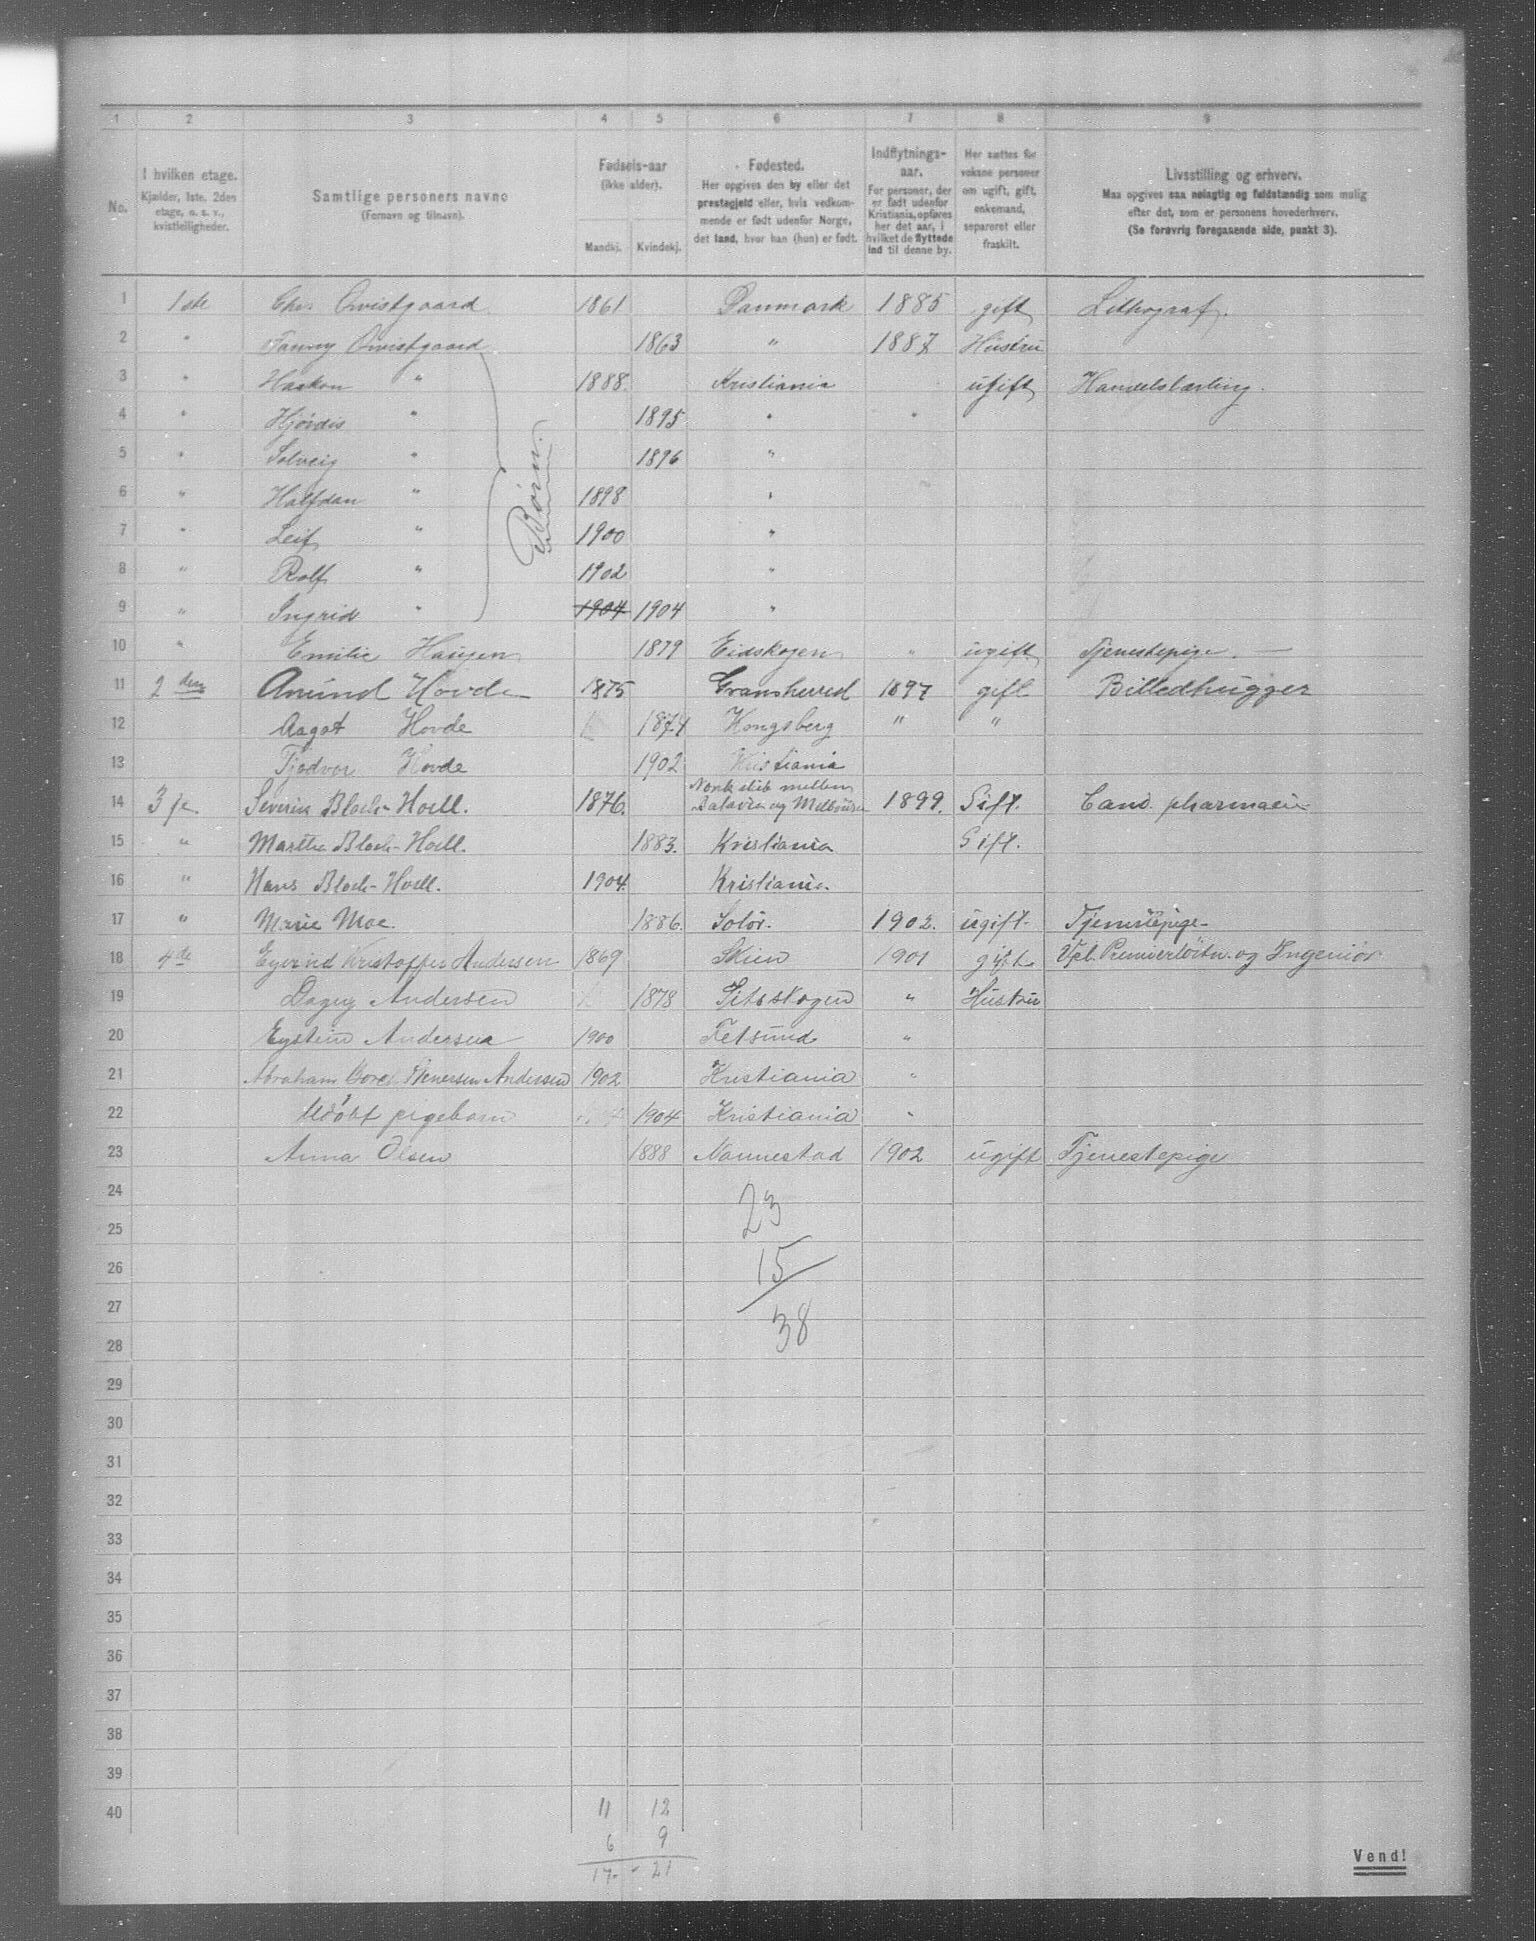 1 2 3 4 5 6 7 8 9
No.
I hvilken etage.
Kjælder, 1ste, 2den
etage, o. s. v.,
kvistleiligheder.
Samtlige personers navne
(Fornavn og tilnavn).
Fødsels-aar
(ikke alder).
Mandkj. Kvindekj.
Fødested.
Her opgives den by eller det
prestegjeld eller, hvis vedkom-
mende er født udenfor Norge,
det land, hvor han (hun) er født.
Indflytnings-
aar.
For personer, der
er født udenfor
Kristiania, opføres
her det aar, i
hvilket de flyttede
ind til denne by.
Her sættes for
voksne personer
om ugift, gift,
enkemand,
separeret eller
fraskilt.
Livsstilling og erhverv.
Maa opgives saa nøiagtig og fuldstændig som mulig
efter det, som er personens hovederhverv.
(Se forøvrig foregaaende side, punkt 3).
1 1ste Chr. Qvistgaard 1861 Danmark 1885 gift Lithograf.
2 " Fanny Qvistgaard 1863 " 1887 Hustru
3 " Haakon " 1888 Kristiania ugift Handelslærling.
4 " Hjördis " 1895 " "
5 " Solveig " 1896 "
Børn.
6 " Halfdan " 1898 "
7 " Leif " 1900 "
8 " Rolf " 1902 "
9 " Ingrid " 1904 1904 "
10 " Emilie Haugen 1879 Eidskogen " ugift Tjenestepige.
11 2den Amund Hovde 1875 Gransherred 1897 gift Billedhugger
12 Aagot Hovde 1874 Kongsberg " "
13 Tjodvor Hovde 1902 Kristiania
14 3je Severin Bloch-Hoell. 1876. Norsk skib mellem
Batavia og Melbourne 1899. Gift. Cand. pharmacie
15 " Martha Bloch-Hoell. 1883. Kristiania Gift.
16 " Hans Bloch-Hoell. 1904. Kristiania.
17 " Marie Moe. 1886. Solör. 1902. ugift. Tjenestepige
18 4de Eyvind Kristoffer Andersen 1869 Skien 1901 gift Vpl. Premierløitn. og Ingeniør
19 Dagny Andersen 1878 Sitskogen " Hustru
20 Eystein Andersen 1900 Fetsund "
21 Abraham Stenersen Andersen 1902 Kristiania "
22 Udöbt pigebarn 1904 Kristiania "
23 Anna Olsen 1888 Nannestad 1902 ugift Tjenestepige
24
23
25
26
15
27
38
28
29
30
31
32
33
34
35
36
37
38
39
40 11 12
6 9
17 - 21
Vend!